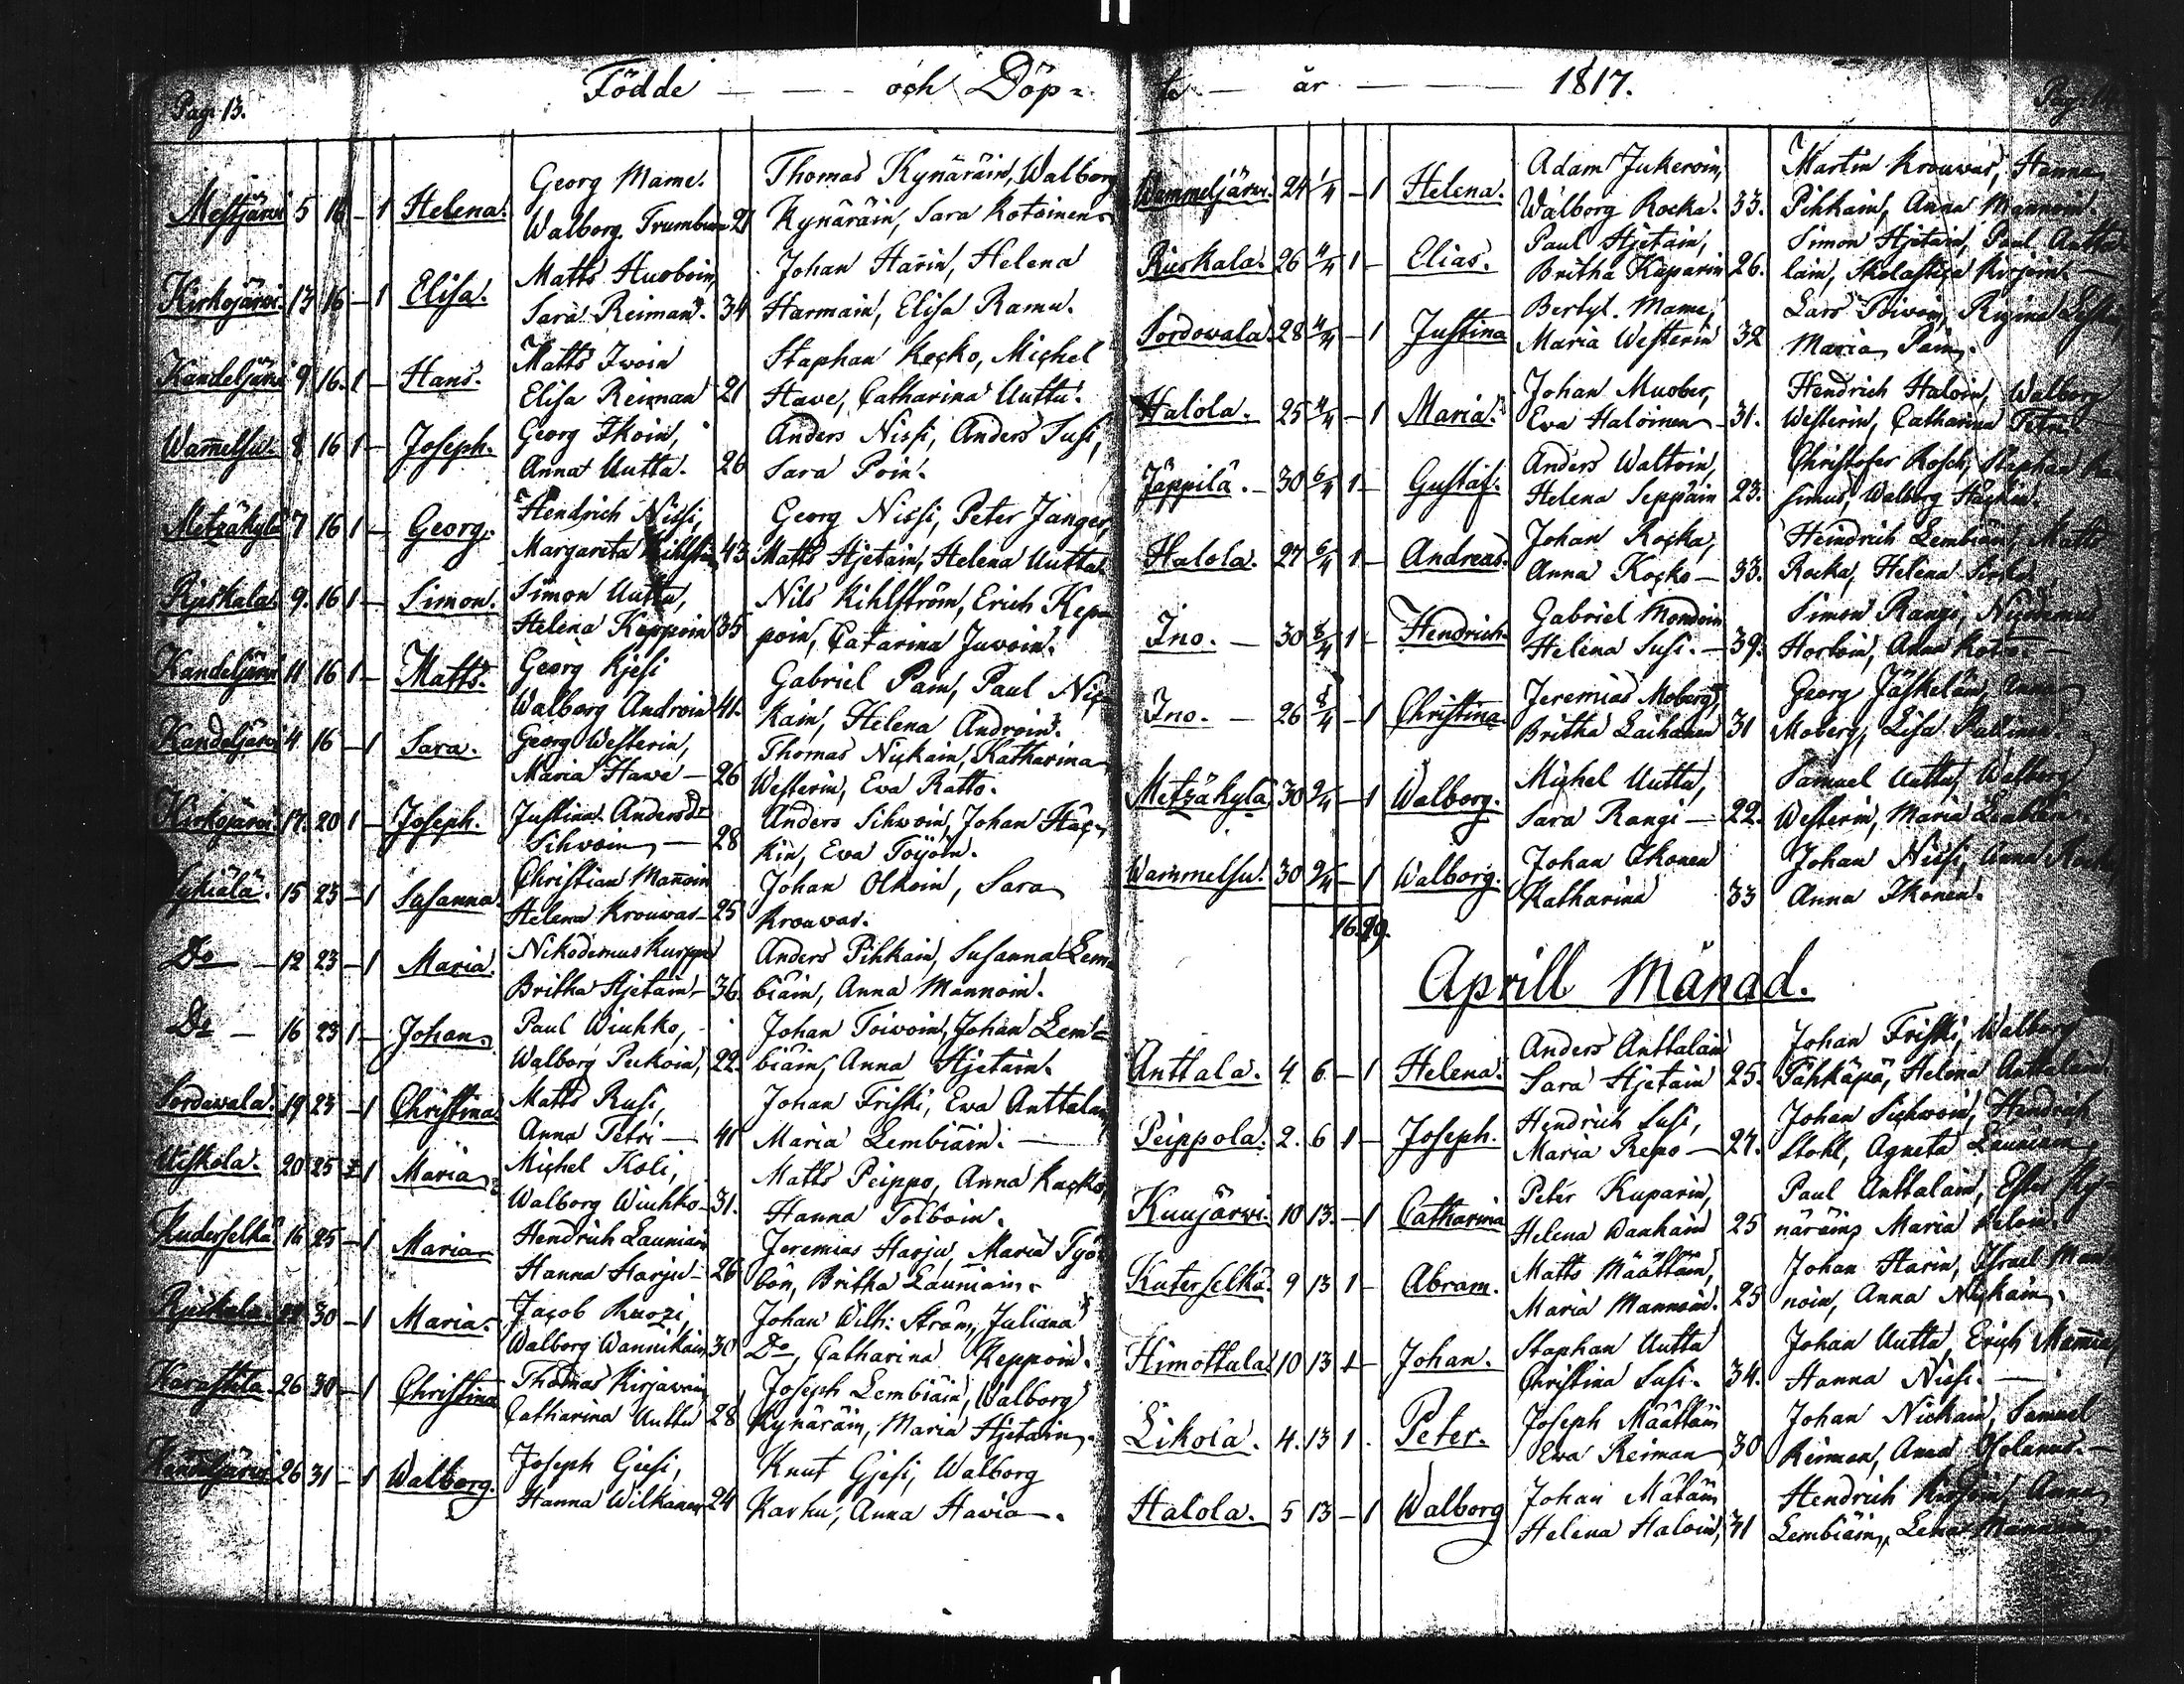 Pag. 13.
Födde — — och Döp=
Georg Mame. Thomas Kynäräin, Walborg
Mestjärvi 5 16 – 1 Helena. Walborg 21 Kynäräin, Sara Kotoinen
Matts Huoboin, Johan Harin, Helena
Kirkojärvi. 13 16 – 1 Elisa. Sara Reiman. 34 Harmain, Elisa Ramu.
Matts Iwoin Staphan Kocko, Michel
Kandeljärvi 9. 16. 1 – Hans. Elisa Reiman 21 Have, Catharina Uuttu.
Georg Ikoin, Anders Nissi, Anders Susi,
Wam̄elsu. 8 16 1 – Joseph. Anna Uutta. 26 Sara Poin.
Hendrich Nissi, Georg Nissi, Peter Janger,
Metzäkylä 7 16 1 – Georg. Margareta 43 Matts Hjetain, Helena Uutta
Simon Uutta, Nils Kihlström, Erich Kep=
Rjuskala. 9. 16 1 – Simon. Helena Keppoin 35 poin, Catarina Juvoin.
Georg Kjesi Gabriel Pam, Paul Nic=
Kandeljärvi 11 16 1 – Matts. Walborg Androin 41. kain, Helena Androin.
Georg Westerin, Thomas Nickain, Katharina
Kandeljärvi 4 16 – 1 Sara. Maria Hawe – 26 Westerin, Ewa Ratto.
Justina Andersdr Anders Sihwoin, Johan Häc=
Kirkojärvi. 17. 20 1 – Joseph. Sihwoin, – 28 kin, Ewa Töyöin.
Christian Man̄oin Johan Olkoin, Sara
Sykiälä. 15 23 – 1 Susanna. Helena Krouwas – 25 Krouwas.
Nikodemus Kurppa Anders Pihkain, Susanna Lem=
Do – 12 23 – 1 Maria. Britha Hjetain – 36. biäin, Anna Mannoin.
Paul Wiuhko, Johan Toiwoin, Johan Lem=
Do – 16 23 1 – Johan. Walborg Peckoin, 22. biäin, Anna Hjetain.
Matts Rusi, Johan Friski, Ewa Anttalain
Sordawala. 19 23 – 1 Christina. Anna Petri – 41 Maria Lembiäin. –
Michel Koli, Matts Peippo, Anna Kacko,
Uiskola. 20 25 – 1 Maria. Walborg Wiuhko – 31. Hanna Tolboin.
Hendrich Launiain Jeremias Harju, Maria Työ=
Kuderselkä 16 25 – 1 Maria. Hanna Harju – 26 bön, Britha Launiain.
Jacob Kuozi, Johan Wilh: Ström, Juliana
Rjuskala. 30 – 1 Maria. Walborg Wannikain 30 Do, Catharina Keppoin.
Thomas Kirjavain, Joseph Lembiäin, Walborg
Karastula. 26 30 – 1 Christina Catharina Uuttu 28 Kynäräin, Maria Hjetain.
Joseph Giesi, Knut Gjesi, Walborg
Kandeljärvi 26 31 – 1 Walborg. Hanna Wilkanen 24 Karhu, Anna Havia.
te — år — — 1817.
Adam Jukeroin, Martin Krouwas, Hanna
Wammeljärvi. 24 1/4 – 1 Helena. Walborg Rocka. 33. Pihkain, Anna Mannoin.
Paul Hjetain, Simon Hjetain, Paul Antta=
Riuskala. 26 4/4 1 – Elias. Britha Kuparin 26. lain, Skolastica
Bertyl. Mame, Lars Toivoin, Regina
Sordowala. 28 4/4 – 1 Justina Maria Westerin 32 Maria Pain.
Johan Muober, Hendrich Haloin, Walborg
Halola. 25 4/4 – 1 Maria. Ewa Haloinen – 31. Westerin, Catharina Petri
Anders Waltoin, Christofer Rosch, Staphan
Jäppilä. – 30 6/4 1 – Gustaf. Helena Seppäin 23. simus, Walborg Häckin.
Johan Rocka, Heindrich Lembiäin, Matts
Halola. 27 6/4 1 – Andreas. Anna Kocko – 33. Rocka, Helena
Gabriel Mondoin Simon Rangi,
Ino. – 30 8/4 1 – Hendrich. Helena Susi. – 39. Horloin, Anna
Jeremias Moberg, Georg Jäskeläin, Anna
Ino. – 26 8/4 – 1 Christina. Britha Laihanen 31 Moberg, Lisa Pallinen
Michel Uutta, Samuel Uutta, Walborg
Metzäkylä 30 9/4 – 1 Walborg. Sara Rangi – 22. Westerin, Maria
Johan Ikonen Johan Nissi, Anna
Wammelsu. 30 9/4 – 1 Walborg. Katharina 33 Anna Ikonen.
16. 29.
Aprill Månad.
Anders Anttalain Johan Friski, Walborg
Anttala. 4. 6 – 1 Helena. Sara Hjetain 25. Pähkäpä, Helena Anttalain.
Hendrich Susi, Johan Sichwoin, Hendrich
Peippola. 2. 6 1 – Joseph. Maria Repo – 27. Stohl, Agneta Launiain
Peter Kuparin, Paul Anttalain, Ester Ky=
Kuujärvi. 10 13. – 1 Catharina Helena Wanhain 25 näräin, Maria
Matts Määttäin, Johan Harin, Israel Man=
Kuterselkä. 9 13 1 – Abram. Maria Mannoin. 25 noin, Anna Nickain.
Staphan Uutta Johan Uutta, Erich
Himottula. 10 13 1 – Johan. Christina Susi. 34. Hanna Nissi. –
Joseph Määttäin Johan Nickain, Samuel
Likola. 4. 13 1. Peter. Ewa Reiman 30 Reiman, Anna
Johan Mätäin Hendrich Anna
Halola. 5 13 – 1 Walborg Helena Haloin, 31 Lembiäin, Lena